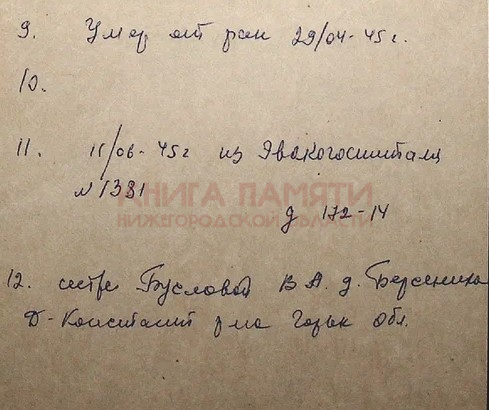 9. Умер от ран 29/04-45г.
10.
11. 11/06-45г из Эвакогоспиталя
№1381
КНИГА ПАМЯТИ
НИЖЕГОРОДСКОЙ ОБЛАСТИ
д 172-14
12. сестре Бусловой В А. д. Берсениха
Д-Констант р-на Горьк Обл.